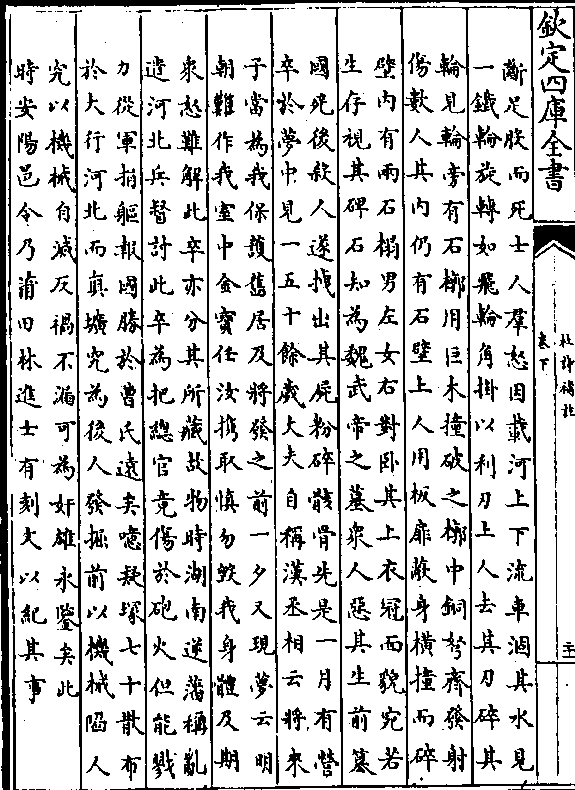 欽定四庫全書
卷下
斷足脛而死士人羣怒因載河上下流車涸其水見
一鐵輪旋轉如飛輪角掛以利刃上人去其刃碎其
輪見輪旁有石槨用巨木撞破之槨中銅弩齊發射
傷數人其内仍有石壁上人用板扉蔽身橫撞而碎
壁内有兩石榻男左女右對卧其上衣冠面貌宛若
生存視其碑石知為魏武帝之墓衆人惡其生前簒
國死後殺人遂拽出其屍粉碎骸骨先是一月有營
卒於夢中見一五十餘歲丈夫自稱漢丞相云將來
子當為我保護舊居及將發之前一夕又現夢云明
朝難作我室中金寶任汝携取慎勿毀我身體及期
衆怒難解此卒亦分其所藏故物時湖南逆藩稱亂
遣河北兵督討此卒為把總官竟傷於砲火但能戮
力從軍捐軀報國勝於曹氏遠矣噫疑塚七十散布
於大行河北而真壙究為後人發掘前以機械陷人
究以機械自滅反禍不漏可為奸雄永鑒矣此
時安陽邑令乃莆田林進士有刻文以紀其事